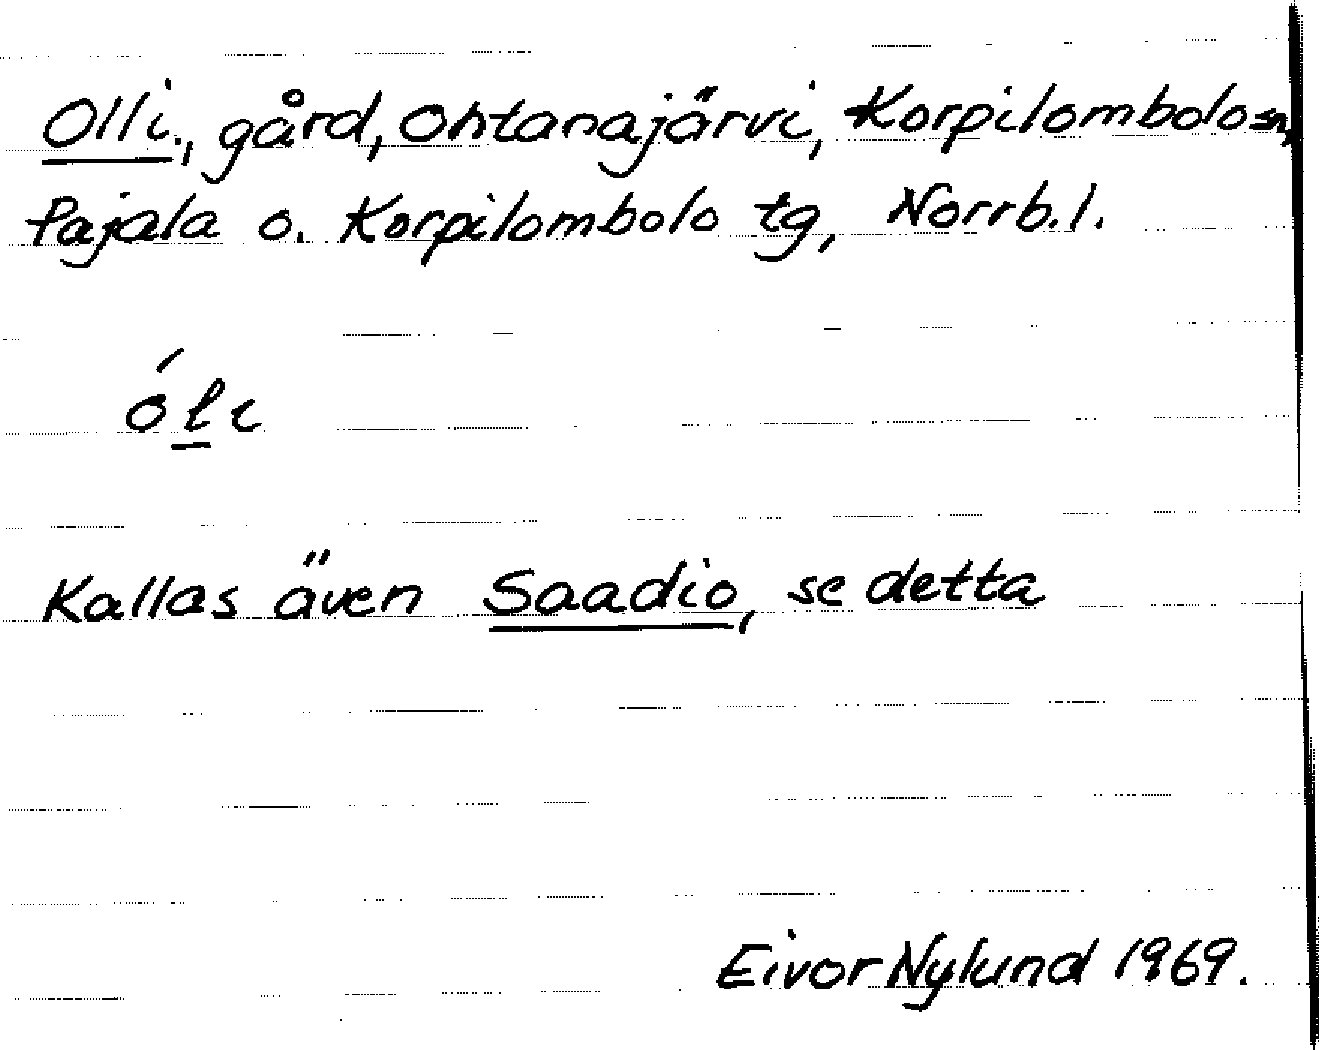 Olli, gård, Ohtanajärvi, Korpilombolo sn,
Pajala o. Korpilombolo tg, Norrb. l.
ól̲i
Kallas även Saadio, se detta
Eivor Nylund 1969.